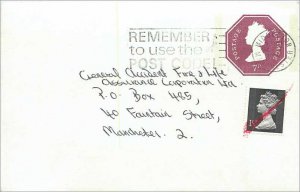 REMEMBER
to use the
POST CODE
POSTAGE
POSTAGE
7P
General Accident Fire & Life
Assurance Corporation Ltd
P.O. Box 485,
40 Fountain Street,
Manchester 2.